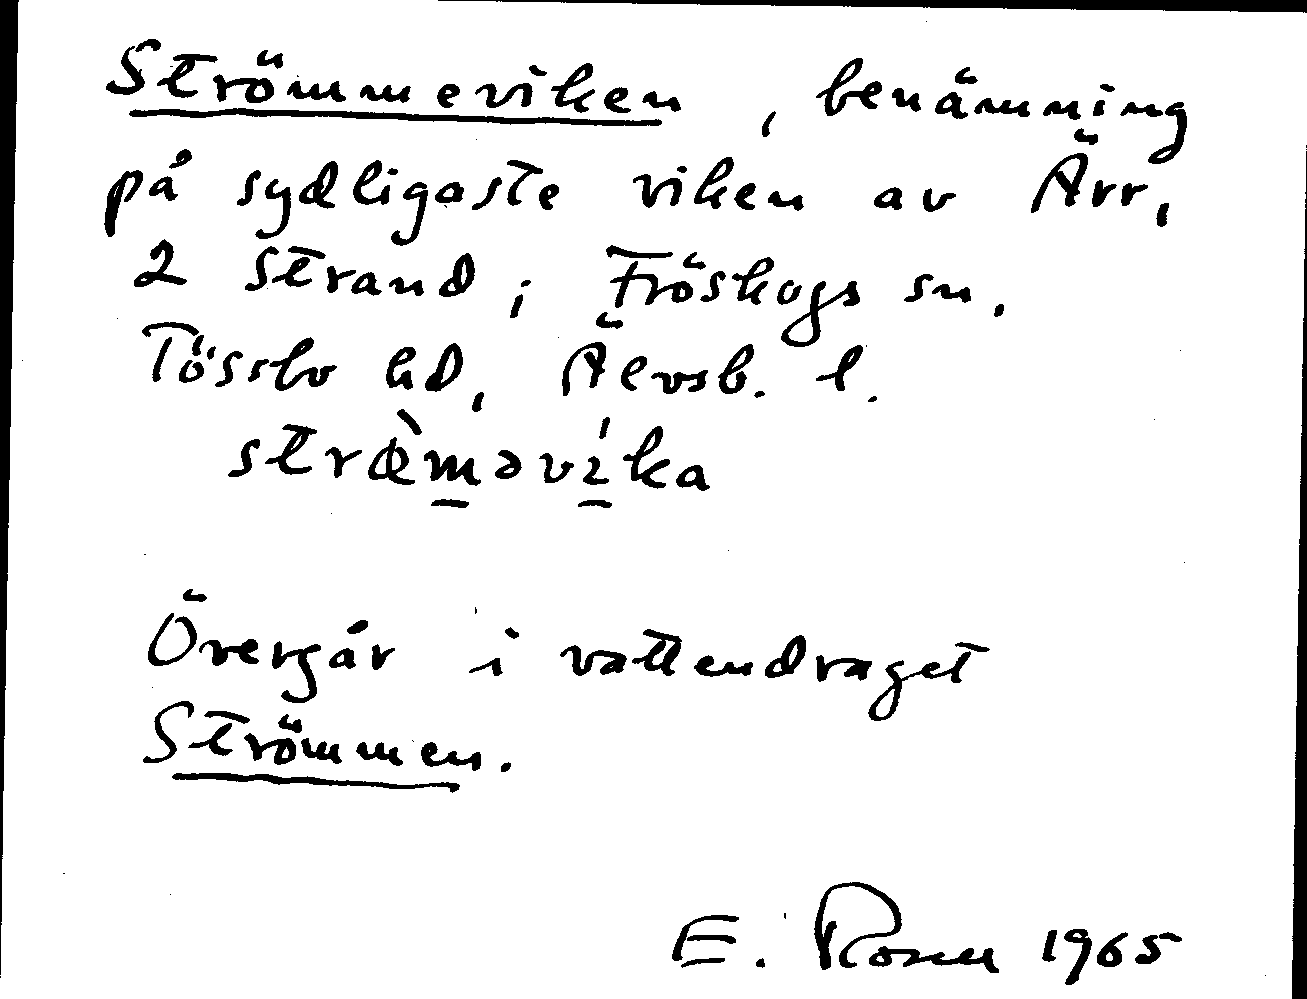 Strömmeviken, benämning
på sydligaste viken av Ärr,
2 Strand i Fröskogs sn.
Tössbo hd, Älvsb. l.
strœ̀m̲əví̲ka
Övergår i vattendraget
Strömmen.
E. Rosen 1965